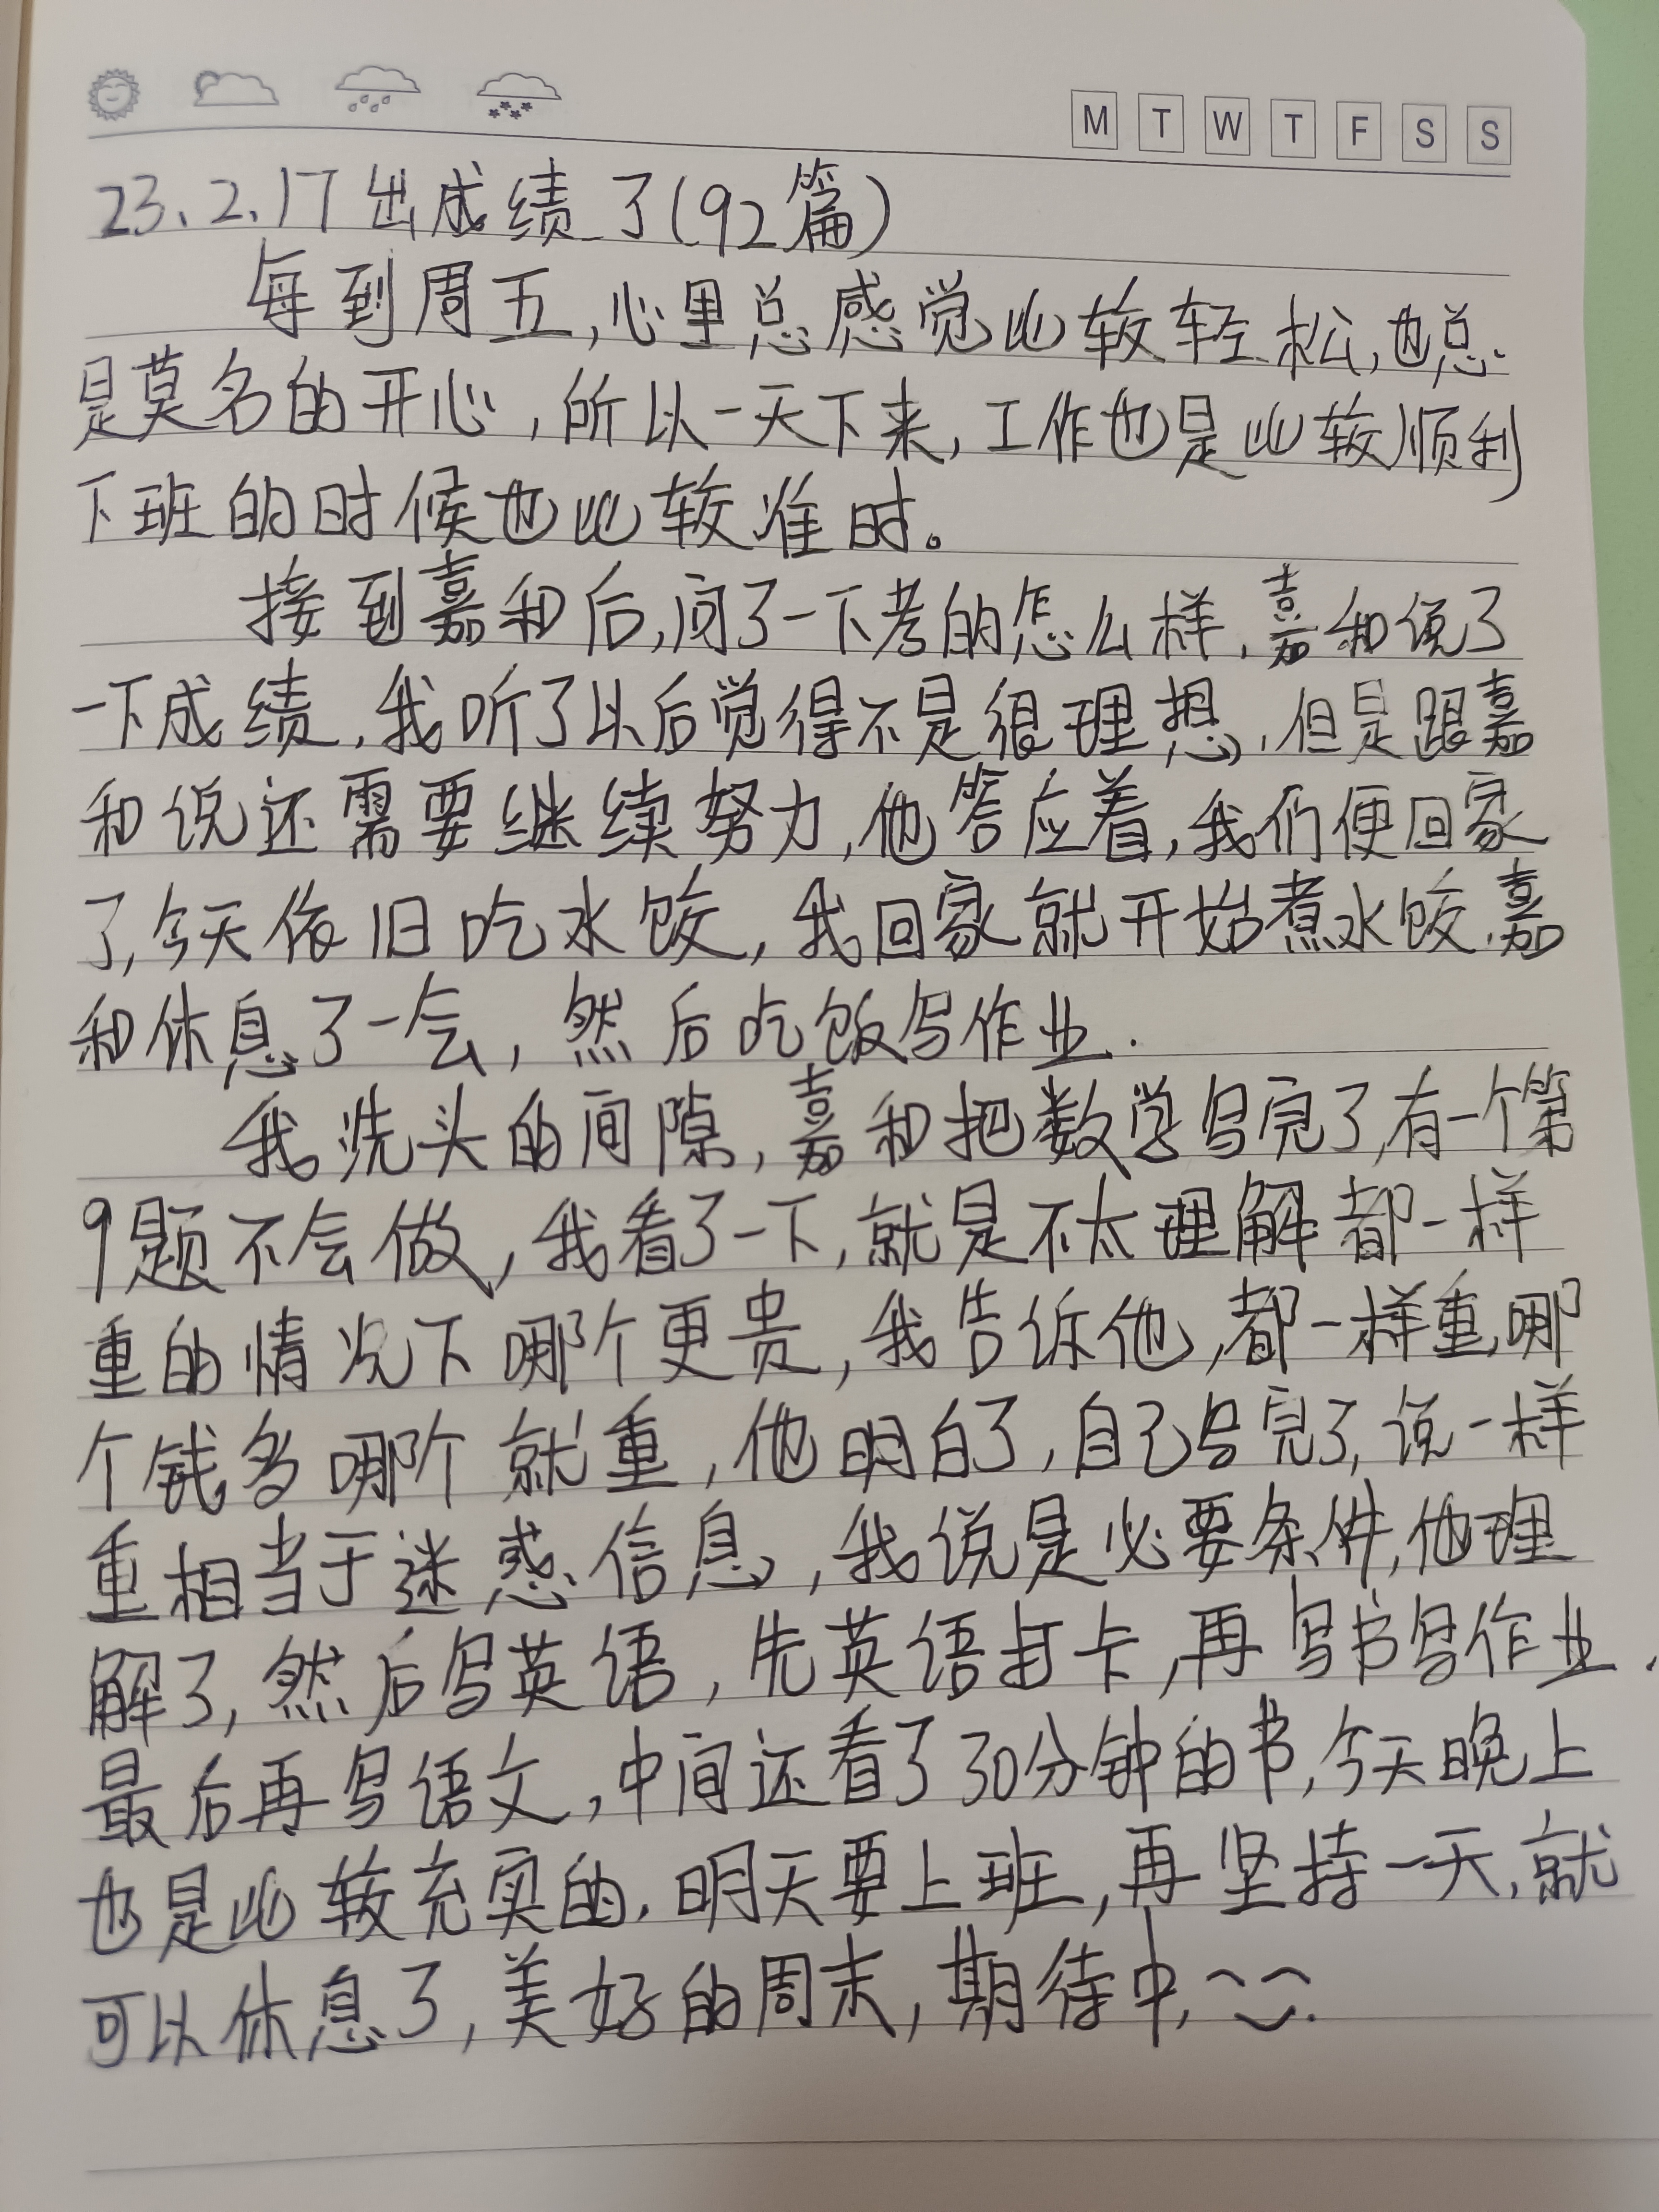 M T W T F S S
23、2、17 出成绩了(92篇)
每到周五,心里总感觉比较轻松,也总
是莫名的开心,所以一天下来,工作也是比较顺利
下班的时候也比较准时。
接到嘉和后,问了一下考的怎么样,嘉和说了
一下成绩,我听了以后觉得不是很理想,但是跟嘉
和说还需要继续努力,他答应着,我们便回家
了,今天依旧吃水饺,我回家就开始煮水饺,嘉
和休息了一会,然后吃饭写作业.
我洗头的间隙,嘉和把数学写完了,有一个第
9题不会做,我看了一下,就是不太理解都一样
重的情况下哪个更贵,我告诉他,都一样重,哪
个钱多哪个就重,他明白了,自己写完了,说一样
重相当于迷惑信息,我说是必要条件,他理
解了,然后写英语,先英语打卡,再写书写作业.
最后再写语文,中间还看了30分钟的书,今天晚上
也是比较充实的.明天要上班,再坚持一天,就
可以休息了,美好的周末,期待中,~~.